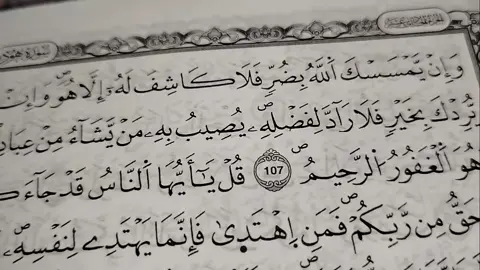 وَإِنْ يَّمْسَسْكَ اَ۬للَّهُ بِضُرٍّ فَلَا كَاشِفَ لَهُۥٓ إِلَّا هُوَۖ وَإِنْ
يُّرِدْكَ بِخَيْرٍ فَلَا رَآدَّ لِفَضْلِهِۦۖ يُصِيبُ بِهِۦ مَنْ يَّشَآءُ مِنْ عِبَا
هُوَ اَ۬لْغَفُورُ اُ۬لرَّحِيمُۖ 107 قُلْ يَٰٓأَيُّهَا اَ۬لنَّاسُ قَدْ جَآءَ
حَقُّ مِن رَّبِّكُمْۖ فَمَنِ اِ۪هْتَدَىٰ فَإِنَّمَا يَهْتَدِے لِنَفْسِهِۦۖ